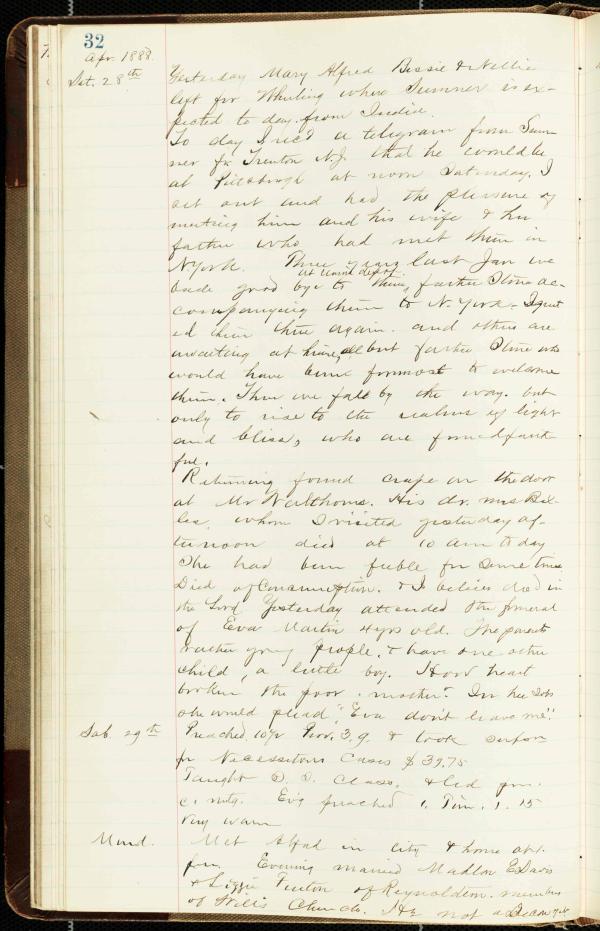 32
Apr. 1888.
Sat. 28th Yesterday Mary Alfred Bessie & Nellie
left for Wheeling where Sumner is ex-
pected to day from India.
To day I rec'd a telegram from Sum-
ner fr Trenton N.J. that he would be
at Pittsburgh at noon Saturday. I
set out and had the pleasure of
meeting him and his wife & her
father who had met them in
N York. Three years last Jan we
at Union depot.
bade good bye to them, father Stone ac-
companying them to N. York.
ed them here again. and others are
awaiting at home, all but father Stone who
would have been foremost to welcome
them. Thus we fall by the way. but
only to rise to the realms of light
and bliss, who are found faith-
ful.
Returning found crape on the door
at Mr Walthours. His dr. mrs
whom I visited yesterday af-
ternoon died at 10 am to day
She had been feeble for some time
Died of Consumption. & I believe died in
the Lord Yesterday attended the funeral
of Eva Martin 4 yrs old. The parents
rather young people. & have one other
child, a little boy. How heart
broken the poor mother. In her sobs
she would plead, "Eva don't leave me."
Sab. 29th Preached 10½ Prov. 3.9. & took
for Necessitous Cases $39.75
Taught S. S. Class. & led
c. mtg. Ev'g preached 1. Tim. 1. 15
very warm
Mond. Met Alfred in city & home
Evening married Mahlon E Davis
& Lizzie Fenton of Reynoldton. members
of Church. He not a